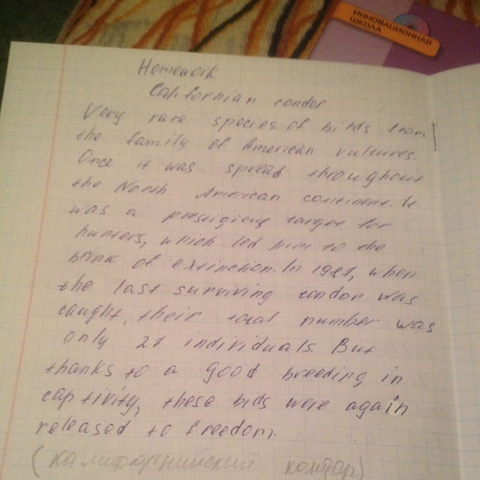 ИННОВАЦИОННАЯ
ШКОЛА
Homework
Californian condor
Very rare species of birds from
the family of American vultures.
Once it was spread throughout
the North American continent. It
was a prestigious target for
hunters, which led him to the
brink of extinction. In 1987, when
the last surviving condor was
caught, their total number was
only 27 individuals. But
thanks to a good breeding in
captivity, these bids were again
released to freedom.
(калифорнийский кондор)